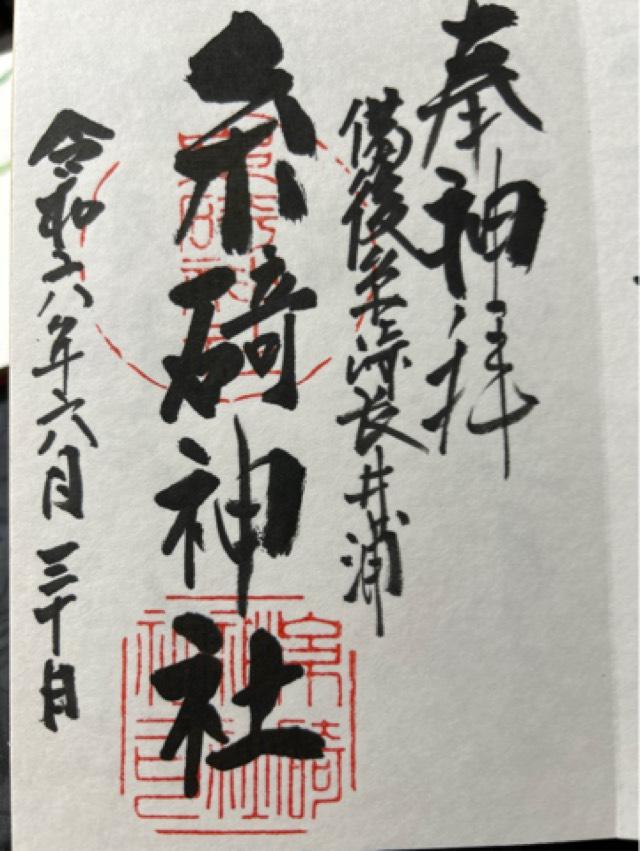 奉神拝
備後 長井浦
糸碕神社
令和六年六月三十日
糸碕
神社